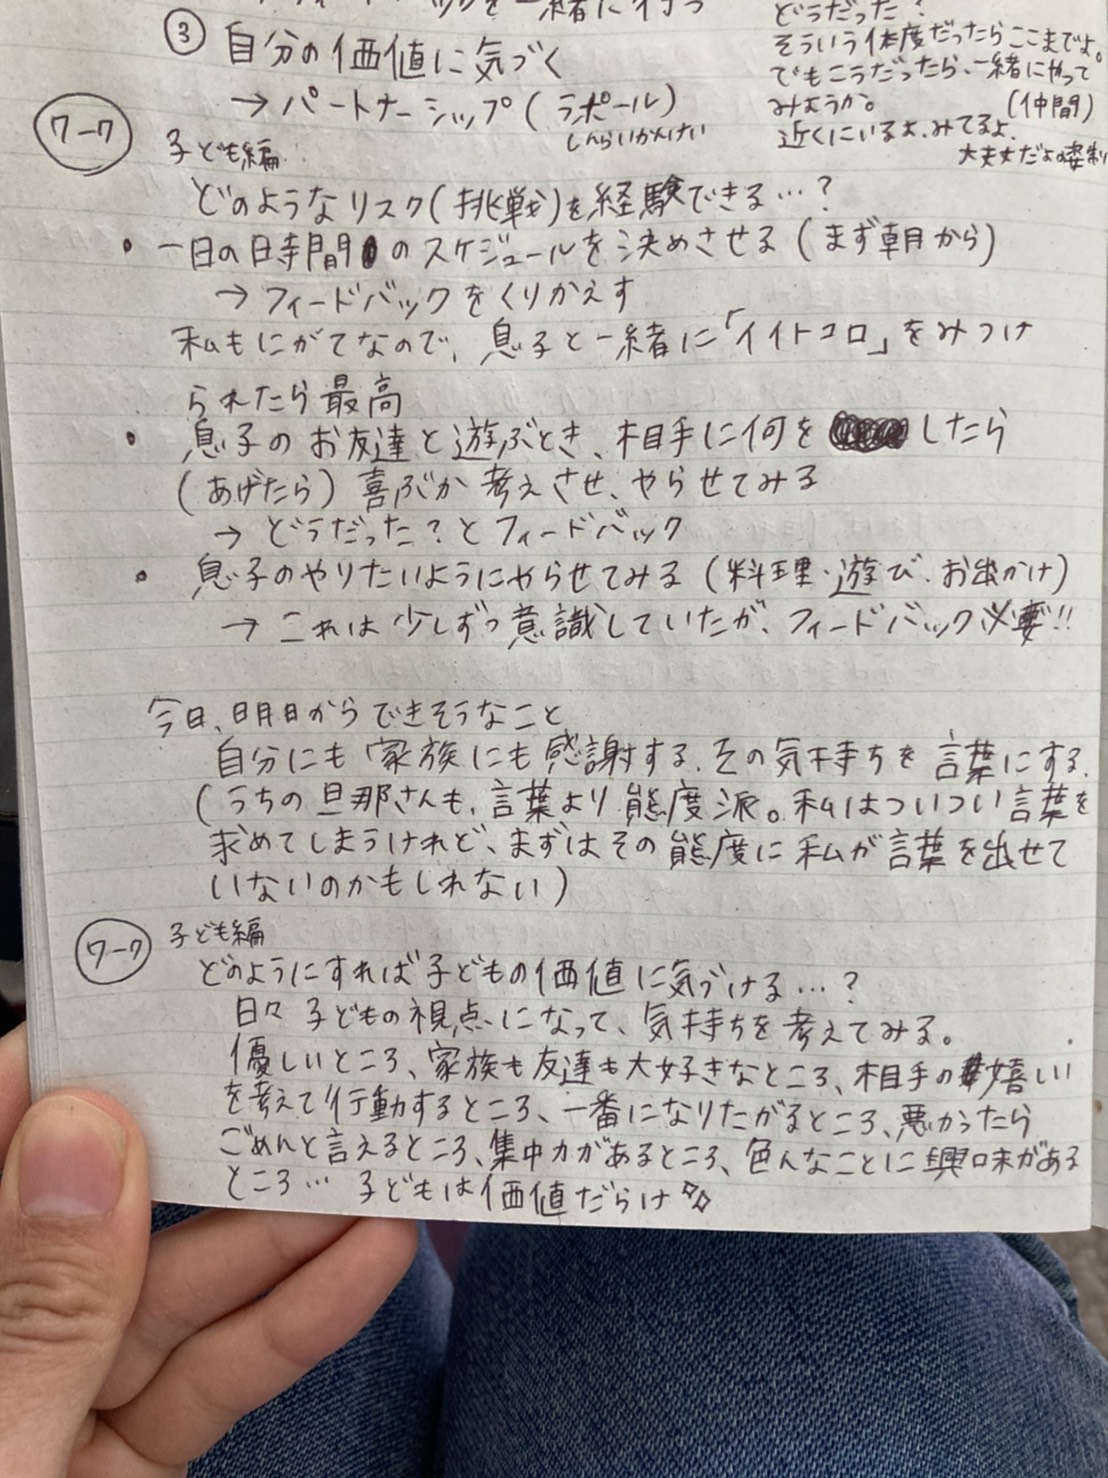 ③ 自分の価値に気づく
→ パートナーシップ(ラポール)
しんらいかんけい
どうだった?
そういう体度だったらここまでよ。
でもこうだったら、一緒にやって
みようか。 (仲間)
近くにいるよ、みてるよ、
大丈夫だよの姿勢
ワーク 子ども編
どのようなリスク(挑戦)を経験できる…?
・一日の時間のスケジュールを決めさせる(まず朝から)
→ フィードバックをくりかえす
私もにがてなので、息子と一緒に「イイトコロ」をみつけ
られたら最高
・息子のお友達と遊ぶとき、相手に何をしたら
(あげたら)喜ぶか考えさせ、やらせてみる
→ どうだった?とフィードバック
・息子のやりたいようにやらせてみる(料理・遊び・お出かけ)
→ これは少しずつ意識していたが、フィードバック必要!!
今日、明日からできそうなこと
自分にも家族にも感謝する。その気持ちを言葉にする。
(うちの旦那さんも、言葉より態度派。私はついつい言葉を
求めてしまうけれど、まずはその態度に私が言葉を出せて
いないのかもしれない)
ワーク 子ども編
どのようにすれば子どもの価値に気づける…?
日々子どもの視点になって、気持ちを考えてみる。
優しいところ、家族も友達も大好きなところ、相手の嬉しい
を考えて行動するところ、一番になりたがるところ、悪かったら
ごめんと言えるところ、集中力があるところ、色んなことに興味がある
ところ… 子どもは価値だらけ